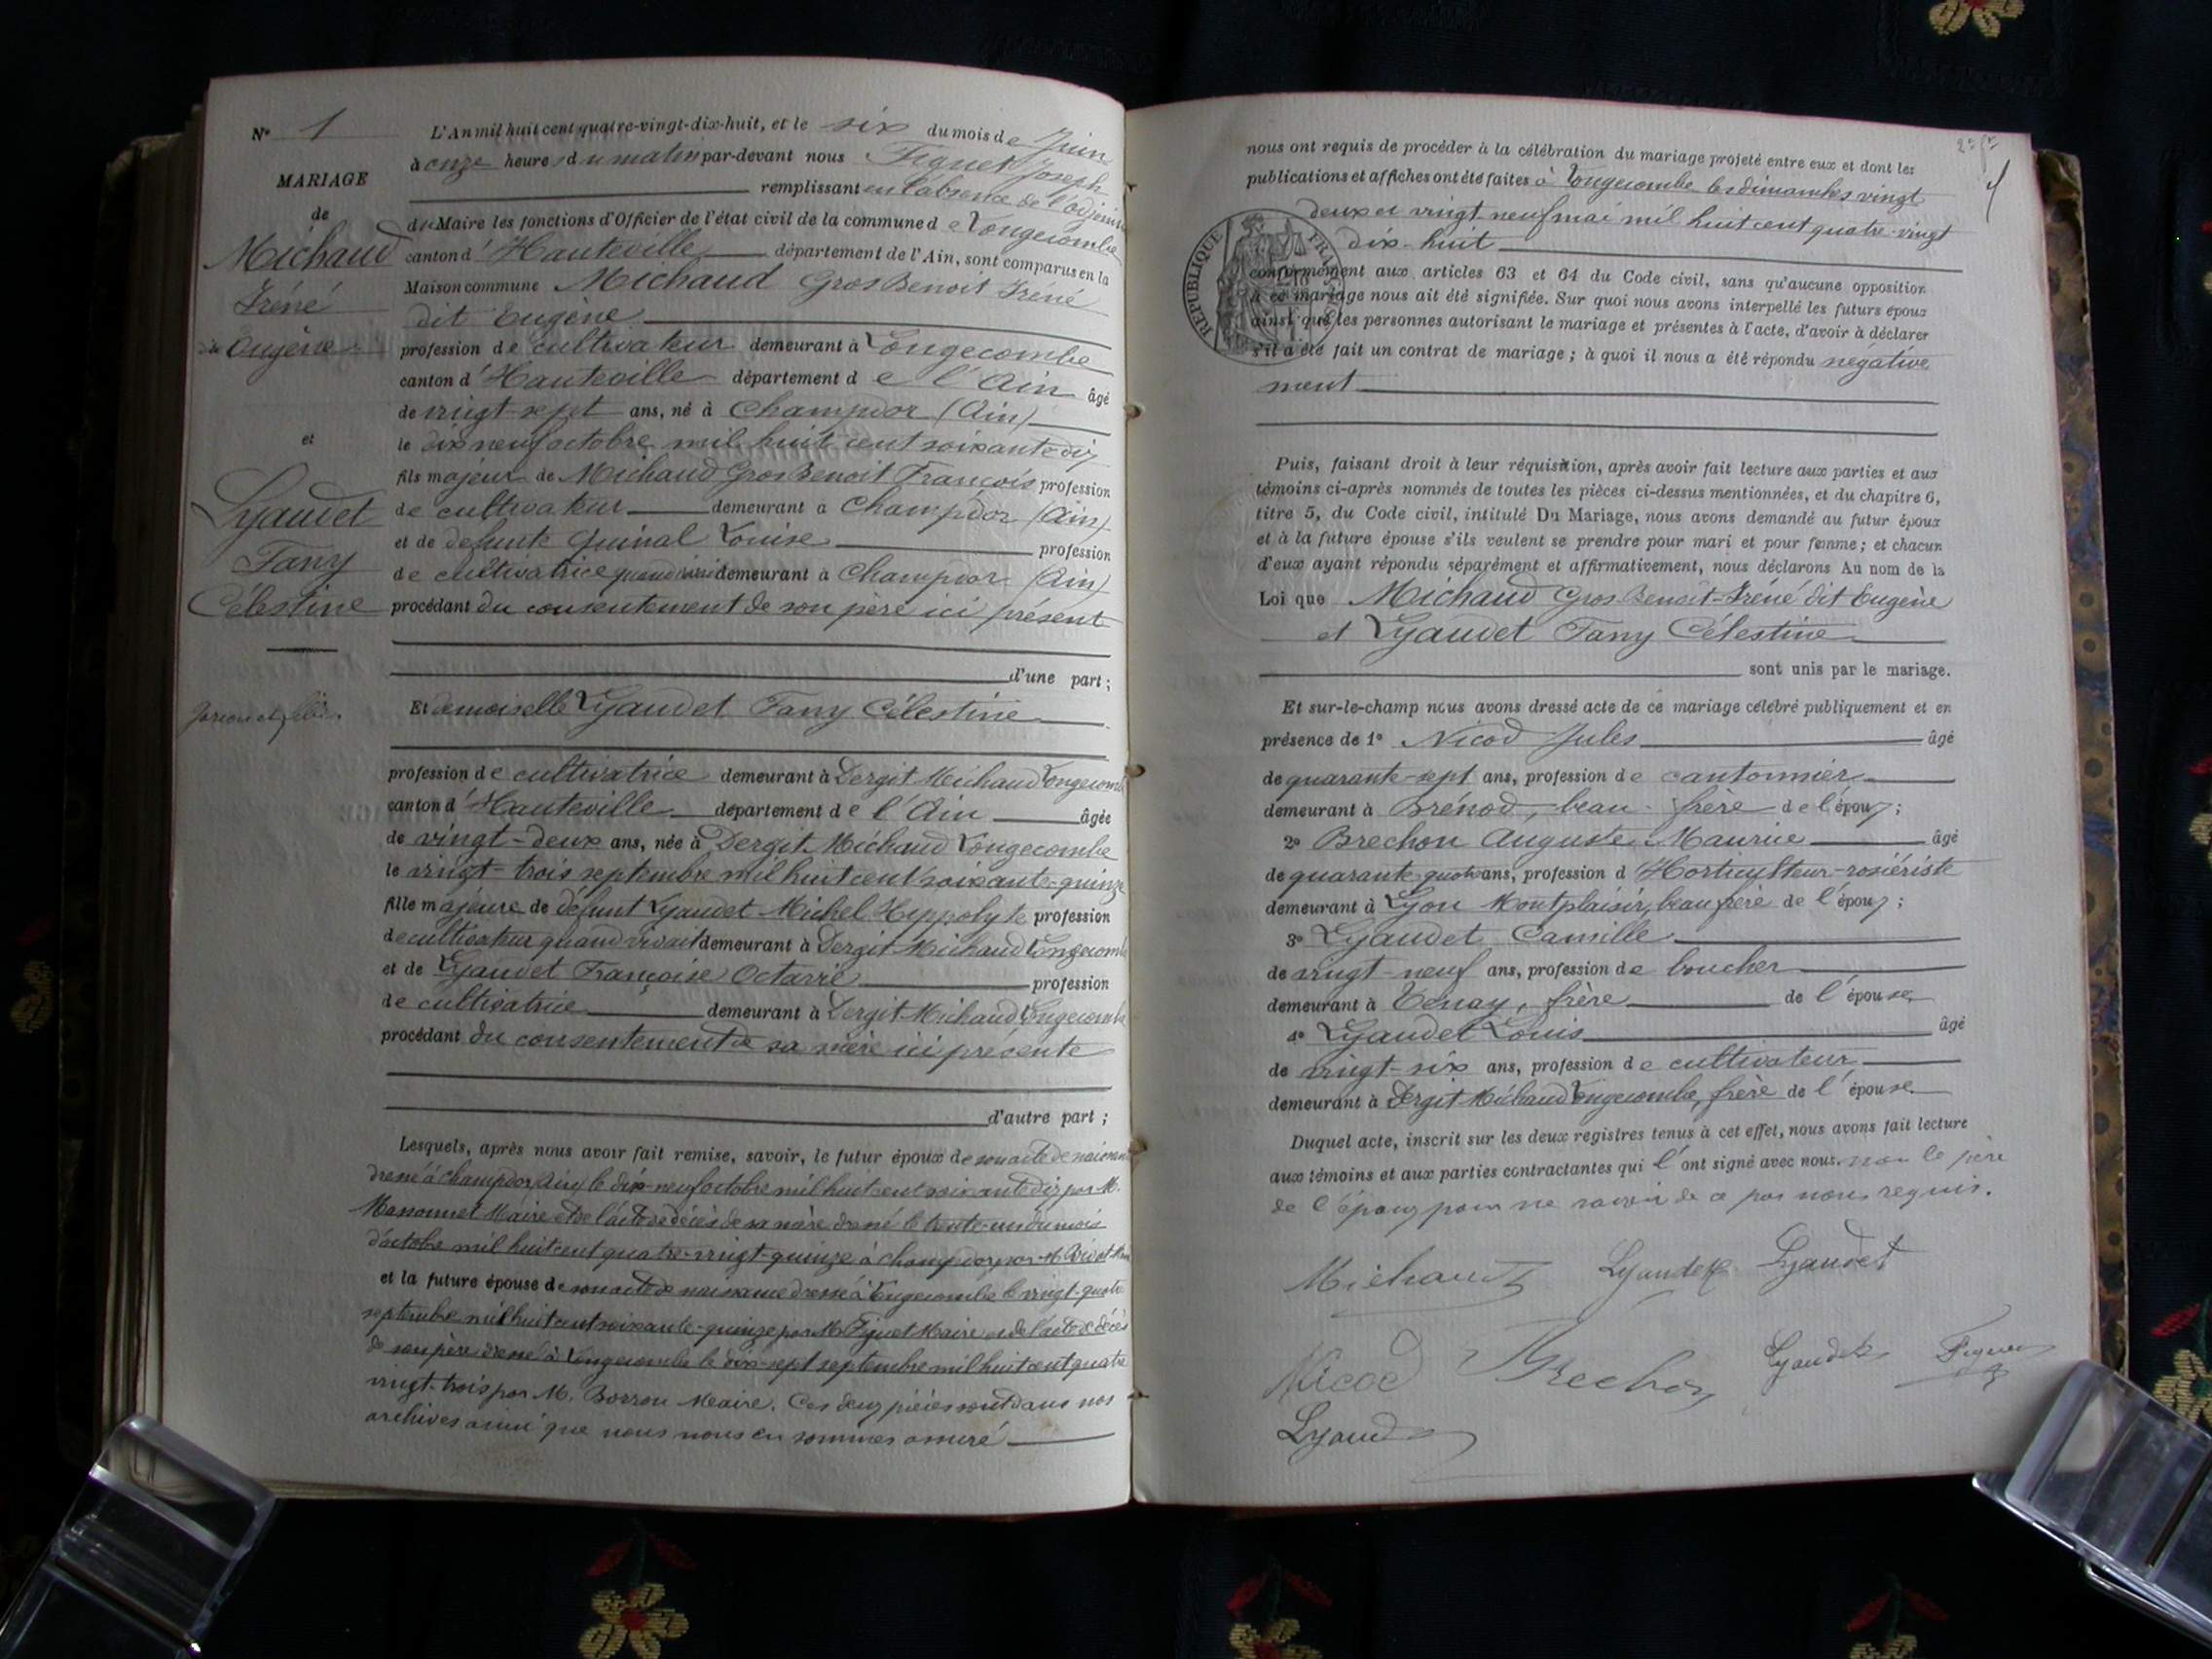 N° 1
MARIAGE
de
Michaud
Iréné
dit Eugène
et
Lyaudet
Fany
Célestine
L'An mil huit cent quatre-vingt-dix-huit, et le six du mois de Juin
à onze heures du matin par-devant nous Figuet Joseph
remplissant en l'absence de l'adjoint
du Maire les fonctions d'Officier de l'état civil de la commune de Longecombe
canton d'Hauteville département de l'Ain, sont comparus en la
Maison commune Michaud Gros Benoit Iréné
dit Eugène
profession de cultivateur demeurant à Longecombe
canton d'Hauteville département de l'Ain âgé
de vingt-sept ans, né à Champdor (Ain)
le dix neuf octobre mil huit cent soixante dix
fils majeur de Michaud Gros Benoit François profession
de cultivateur demeurant à Champdor (Ain)
et de défunte Quinal Louise profession
de cultivatrice quand demeurant à Champdor (Ain)
procédant du consentement de son père ici présent
d'une part ;
Et demoiselle Lyaudet Fany Célestine
profession de cultivatrice demeurant à Dergit Michaud Longecombe
canton d'Hauteville département de l'Ain âgée
de vingt-deux ans, née à Dergit Michaud Longecombe
le vingt-trois septembre mil huit cent soixante-quinze
fille majeure de défunt Lyaudet Michel Hippolyte profession
de cultivateur quand vivait demeurant à Dergit Michaud Longecombe
et de Lyaudet Françoise Octavie profession
de cultivatrice demeurant à Dergit Michaud Longecombe
procédant du consentement de sa mère ici présente
d'autre part ;
Lesquels, après nous avoir fait remise, savoir, le futur époux de son acte de naissance
dressé à Champdor (Ain) le dix-neuf octobre mil huit cent soixante dix par M.
Maire et de l'acte de décès de sa mère dressé le trente-un du mois
d'octobre mil huit cent quatre-vingt-quinze à Champdor par M.
et la future épouse de son acte de naissance dressé à Longecombe le vingt-quatre
septembre mil huit cent soixante-quinze par M. Figuet Maire et de l'acte de décès
de son père dressé à Longecombe le dix-sept septembre mil huit cent quatre
vingt-trois par M. Borron Maire. Ces deux pièces sont dans nos
archives ainsi que nous nous en sommes assuré
nous ont requis de procéder à la célébration du mariage projeté entre eux et dont les
publications et affiches ont été faites à Longecombe les dimanches vingt
deux et vingt-neuf mai mil huit cent quatre-vingt
dix-huit
RÉPUBLIQUE FRANÇAISE
conformément aux articles 63 et 64 du Code civil, sans qu'aucune opposition
à ce mariage nous ait été signifiée. Sur quoi nous avons interpellé les futurs époux
ainsi que les personnes autorisant le mariage et présentes à l'acte, d'avoir à déclarer
s'il a été fait un contrat de mariage ; à quoi il nous a été répondu négative
ment
Puis, faisant droit à leur réquisition, après avoir fait lecture aux parties et aux
témoins ci-après nommés de toutes les pièces ci-dessus mentionnées, et du chapitre 6,
titre 5, du Code civil, intitulé Du Mariage, nous avons demandé au futur époux
et à la future épouse s'ils veulent se prendre pour mari et pour femme ; et chacun
d'eux ayant répondu séparément et affirmativement, nous déclarons Au nom de la
Loi que Michaud Gros Benoit-Iréné dit Eugène
et Lyaudet Fany Célestine
sont unis par le mariage.
Et sur-le-champ nous avons dressé acte de ce mariage célébré publiquement et en
présence de 1° Nicod Jules âgé
de quarante-sept ans, profession de cantonnier
demeurant à Brénod, beau-frère de l'époux ;
2° Brechon Auguste Maurice âgé
de quarante quatre ans, profession d'Horticulteur-rosiériste
demeurant à Lyon Montplaisir, beau frère de l'époux ;
3° Lyaudet Camille
de vingt-neuf ans, profession de boucher
demeurant à Tenay, frère de l'épouse
4° Lyaudet Louis âgé
de vingt-six ans, profession de cultivateur
demeurant à Dergit Michaud Longecombe, frère de l'épouse
Duquel acte, inscrit sur les deux registres tenus à cet effet, nous avons fait lecture
aux témoins et aux parties contractantes qui l'ont signé avec nous. non le père
de l'époux pour ne savoir de ce par nous requis.
Michaud Lyaudet Lyaudet
Nicod Brechon Lyaudet Figuet
Lyaudet